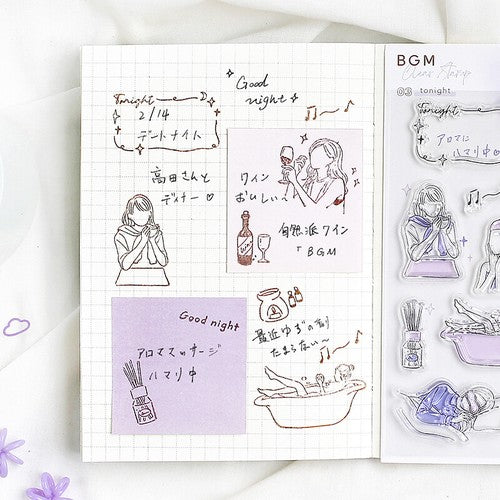 Good
night
Tonight
2/14
デートナイト
高田さんと
ディナー♡
ワイン
おいしい〜
自然派ワイン
「BGM
Good night
アロママッサージ
ハマリ中
最近ゆずの香り
たまらない〜
BGM
Clear Stamp
03 tonight
Tonight
アロマに
ハマリ中